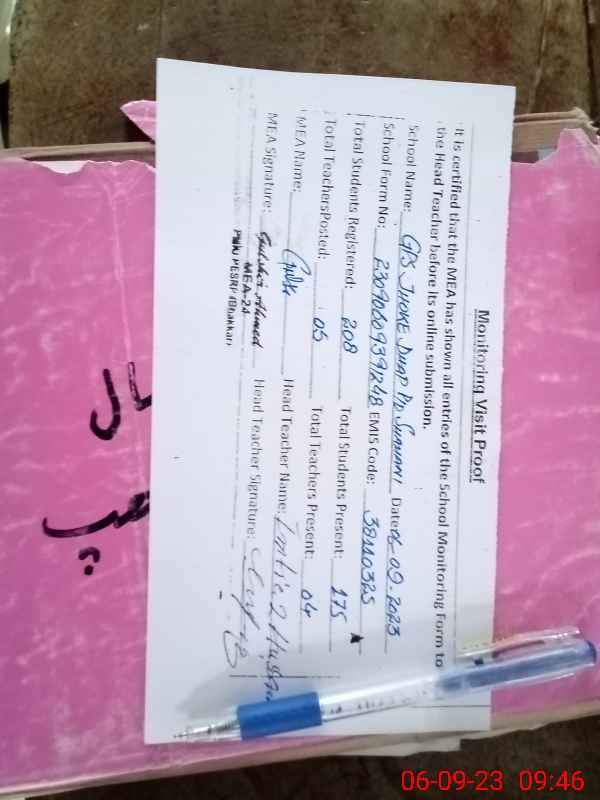 Monitoring Visit Proof
It is certified that the MEA has shown all entries of the School Monitoring Form to
the Head Teacher before its online submission.
School Name: GPS JHOKE Date: 06.09.2023
School Form No: 23090609391248 EMIS Code: 38110325
Total Students Registered: 208 Total Students Present: 175
Total TeachersPosted: 05 Total Teachers Present: 04
MEA Name: Head Teacher Name: Imtiaz Hussain
MEA Signature: Ahmed Head Teacher Signature:
MEA-24
PMIU PESRP (Bhakkar)
06-09-23 09:46